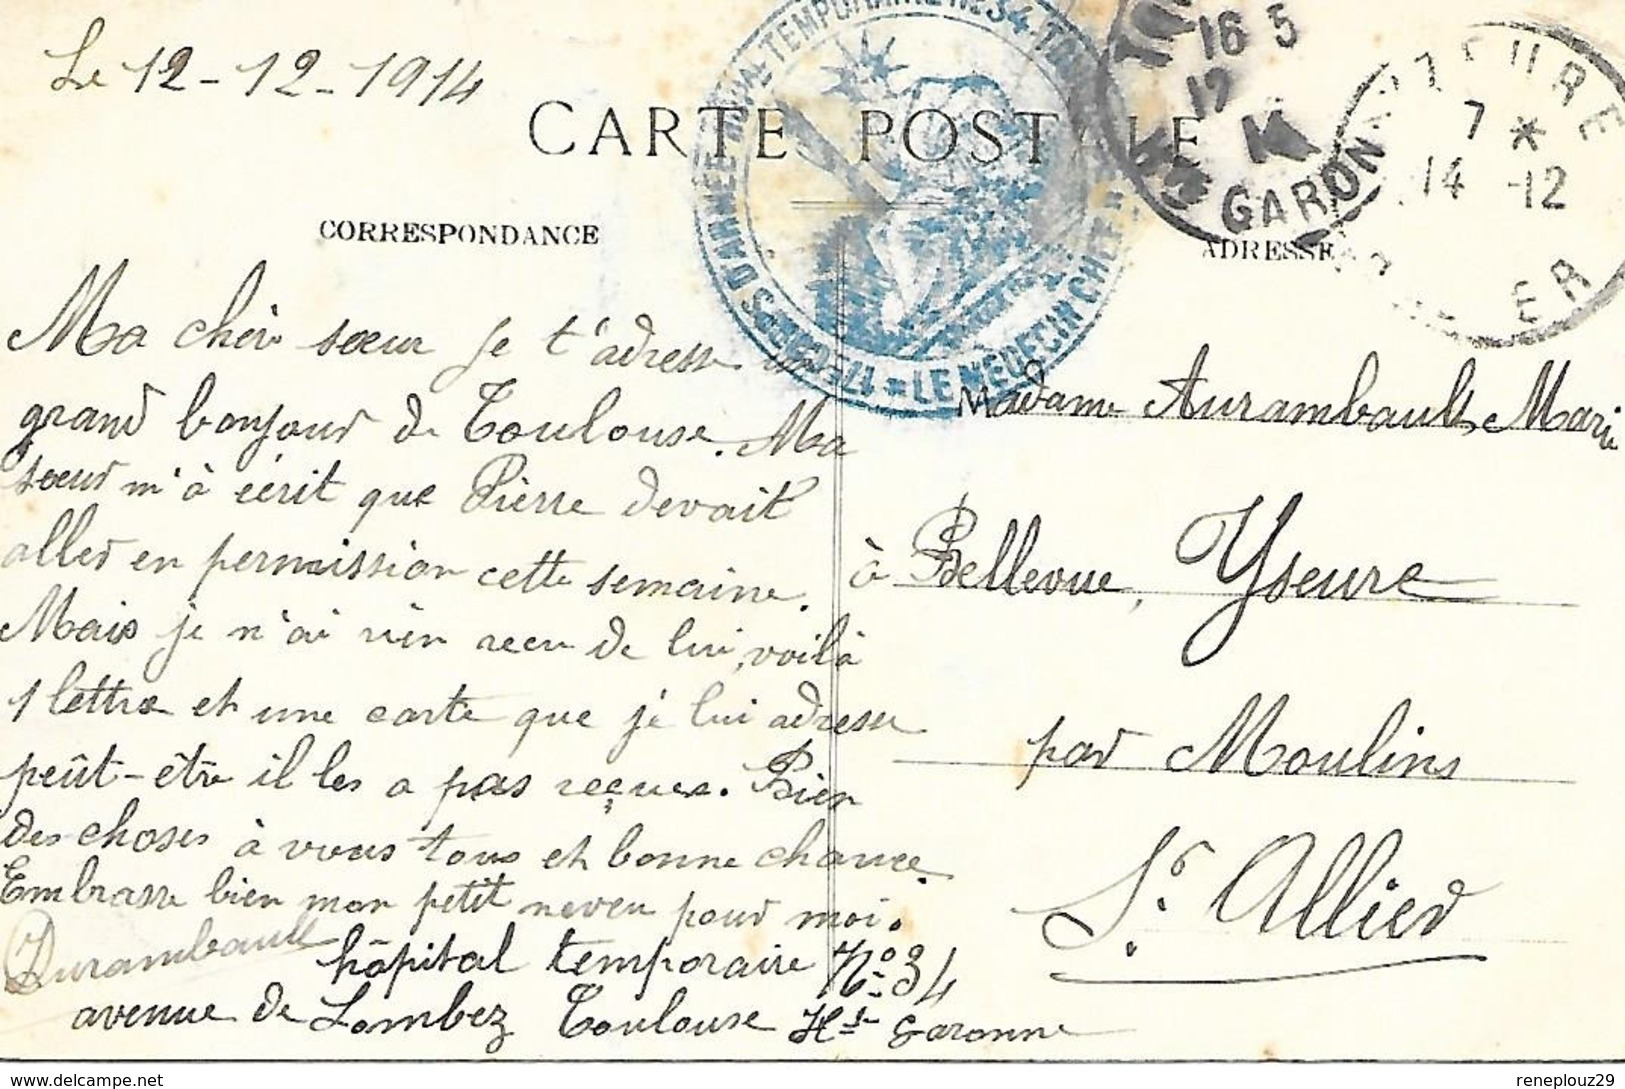 Le 12-12-1914
CARTE POSTALE
CORRESPONDANCE
ADRESSE
17e CORPS D'ARMÉE TEMPORAIRE No 34
LE MÉDECIN CHEF
16 5
12
14
GARONNE
YZEURE
7 *
14 -12
ALLIER
Ma chère sœur je t'adresse un
grand bonjour de Toulouse. Ma
sœur m'à écrit que Pierre devait
aller en permission cette semaine.
Mais je n'ai rien recu de lui, voilà
1 lettre et une carte que je lui adresse
peût-être il les a pas reçues. Bien
des choses à vous tous et bonne chance.
Embrasse bien mon petit neveu pour moi.
Aurambault hôpital temporaire No 34
avenue de Lombez Toulouse Hte Garonne
Madame Aurambault Marie
à Bellevue, Yseure
par Moulins
Allier
reneplouz29